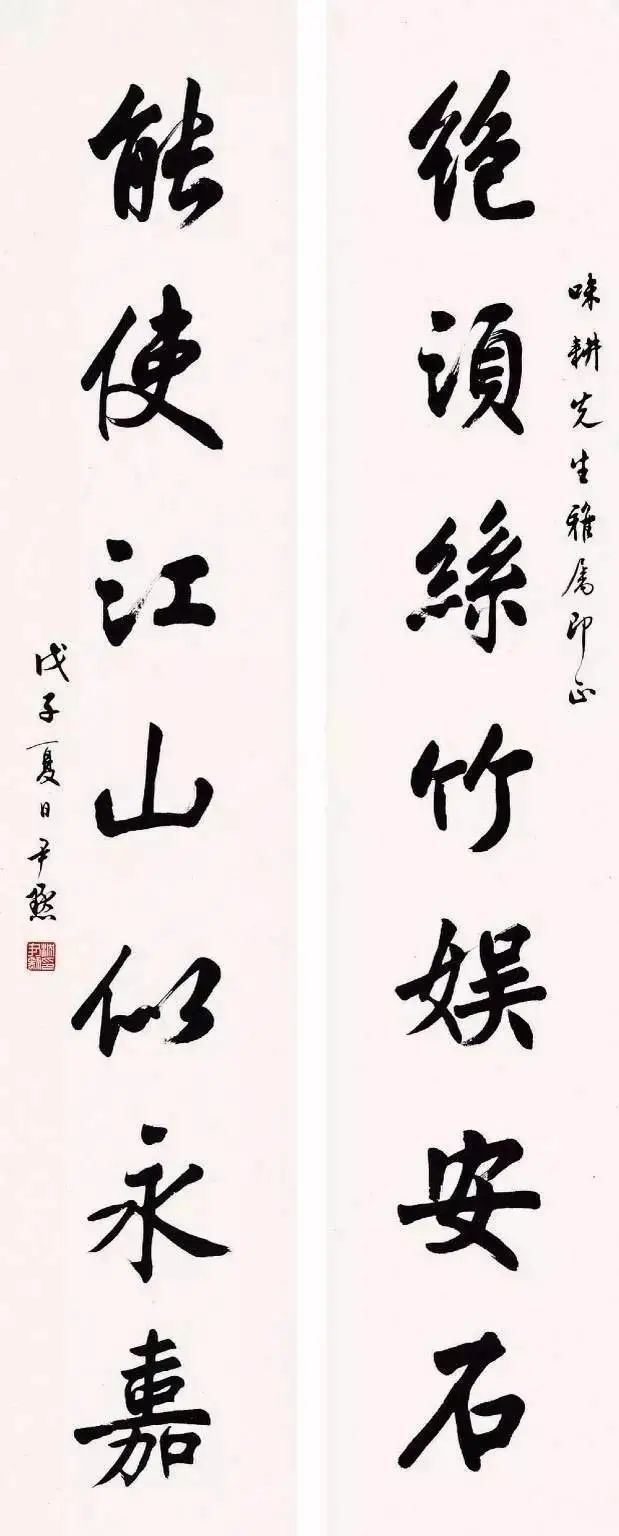 絶湏絲竹娛安石
味耕先生雅属即正
能使江山似永嘉
戊子夏日尹默